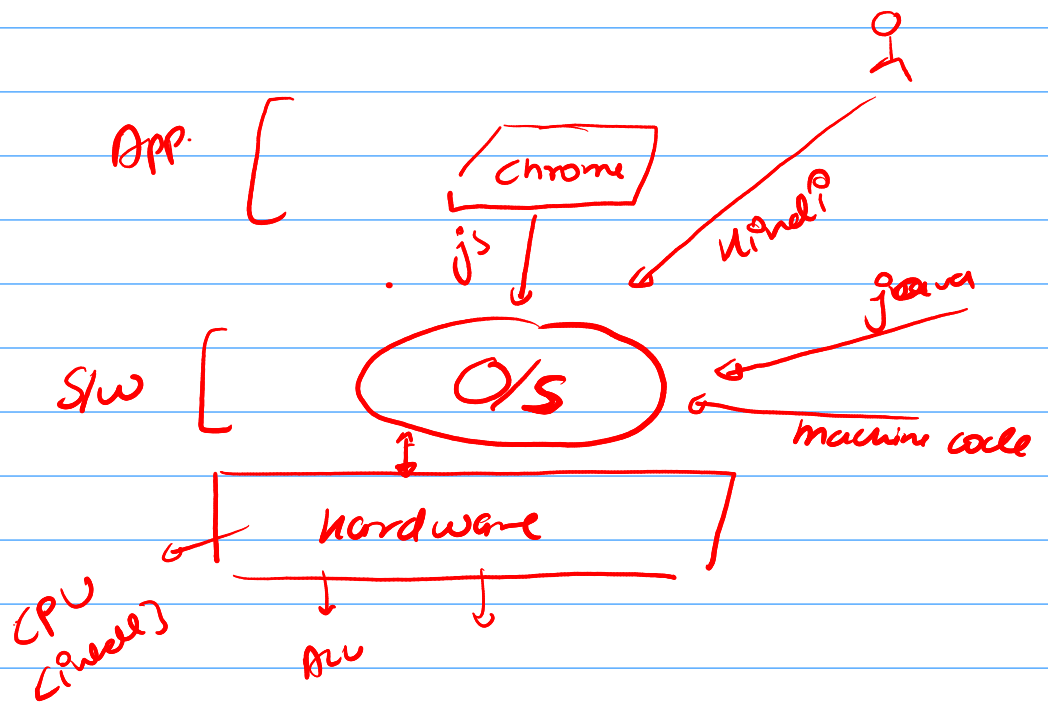 App.
chrome
js
Hindi
java
S/W
O/S
machine code
hardware
CPU
ALU